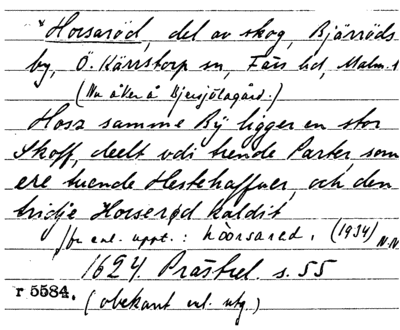 *Horsaröd, del av skog, Bjärröds
by, Ö. Kärrstorp sn, Färs hd, Malm. l
(Nu åker å Bjersjölagård.)
Hosz samme Bÿ ligger en stor
Skoff, deelt vdi trende Parter, som
ere tuende Hestehaffuer, och den
tridje Horserød kaldit
(1934) N.N.
1624. Prästrel. s. 55
r 5584.
(obekant enl. utg.)